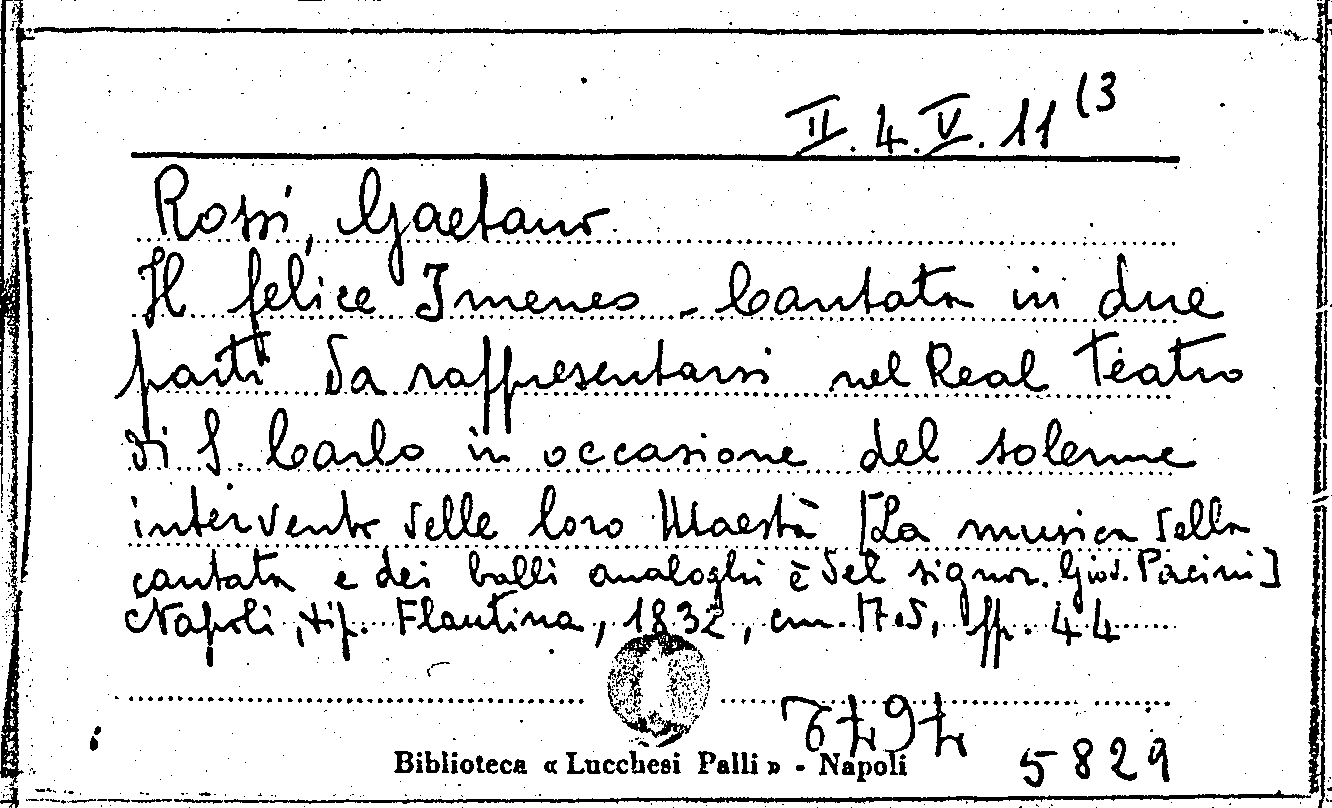 II. 4. V. 11 (3
Rossi, Gaetano
Il felice Imeneo - Cantata in due
parti da rappresentarsi nel Real Teatro
di S. Carlo in occasione del solenne
intervento delle loro Maestà [La musica della
cantata e dei balli analoghi è del signor. Giov. Pacini]
Napoli, tip. Flautina, 1832, cm. 17.5, pp. 44
5829
Biblioteca « Lucchesi Palli » - Napoli